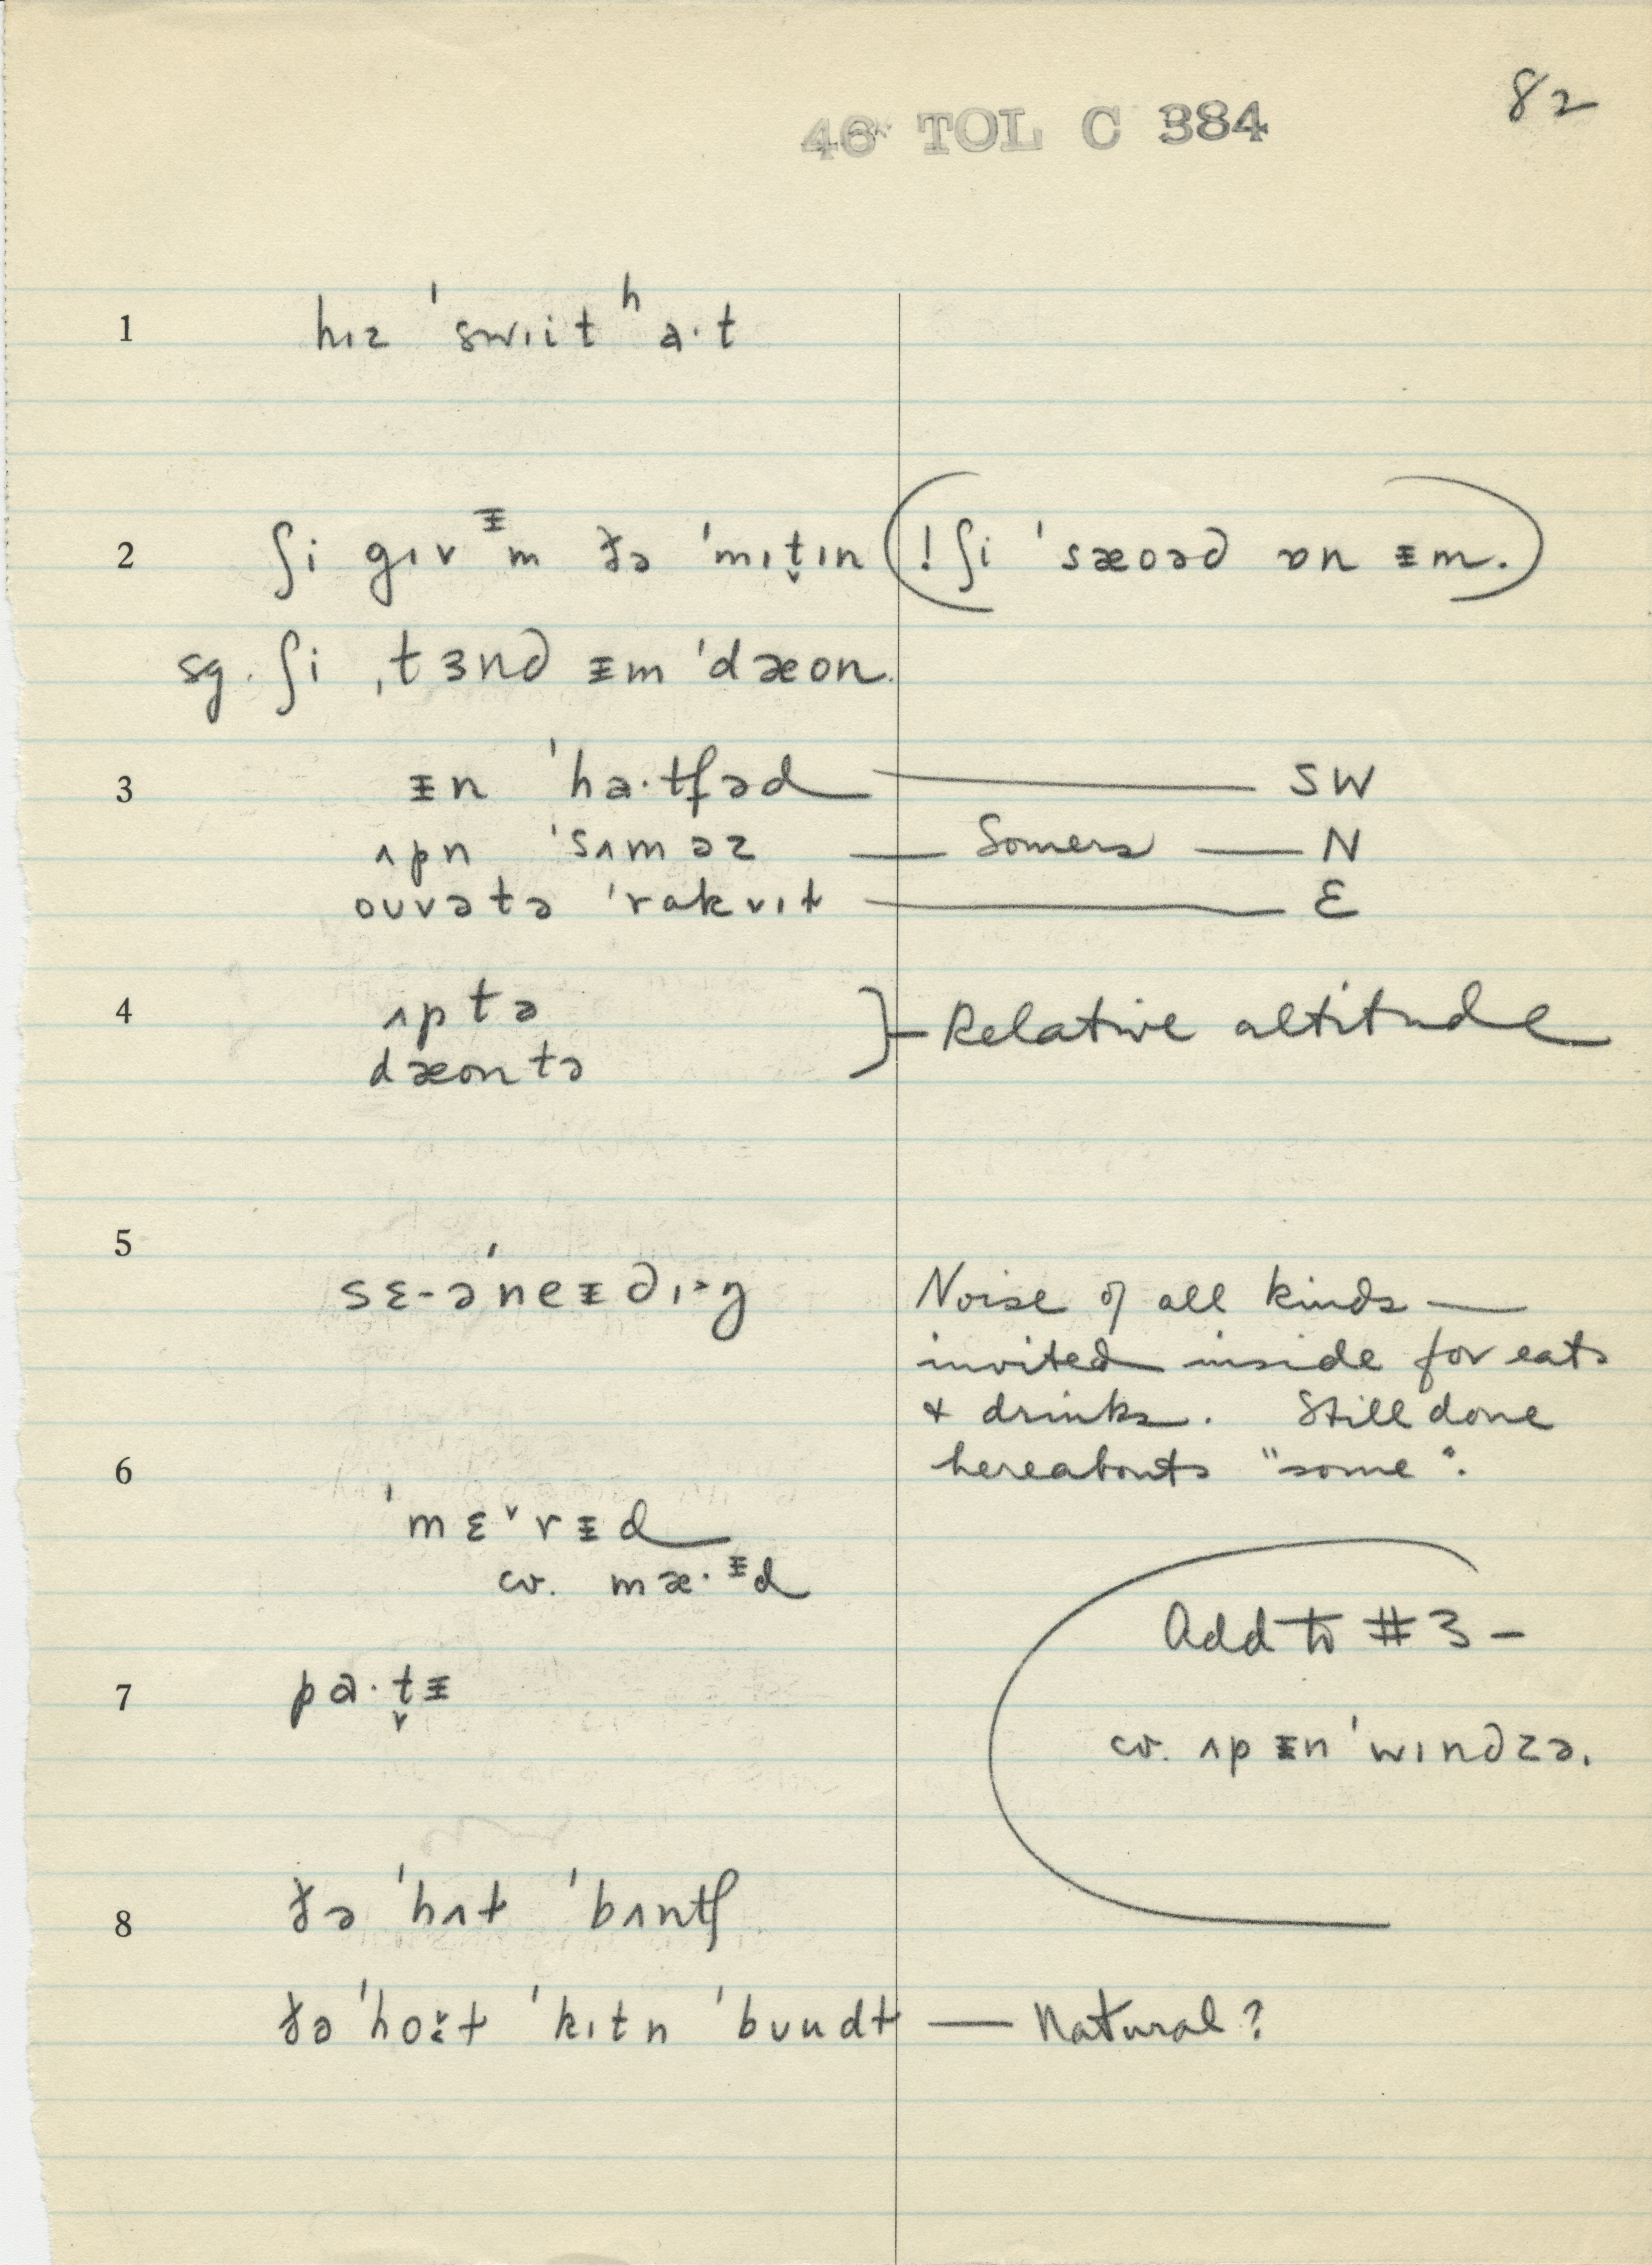 82
46 TOL C 384
1 hɪz ˈswɪitʰa·t
2 ʃi gɪvᵻm ðə ˈmɪt̬ɪn (! ʃi ˈsæoəd ɒn ᵻm.)
sg. ʃi ˌtɜnd ᵻm ˈdæon.
3 ᵻn ˈha·tfəd — SW
ʌpn ˈsʌməz — Somers — N
ouvətə ˈrɑkvɪt — E
4 ʌptə
dæontə } — Relative altitude
5 sɛ-əˈneᵻdɪŋ Noise of all kinds —
invited inside for eats
& drinks. Still done
6 hereabouts "some".
ˈmɛ˅rᵻd
cv. mæ·ᵻd
Add to #3 —
7 pa·t̬ᵻ
cv. ʌp ᵻn ˈwɪndzə.
8 ðə ˈhʌt ˈbʌntʃ
ðə ˈhoɛ̌t ˈkɪtn ˈbuudt — Natural?